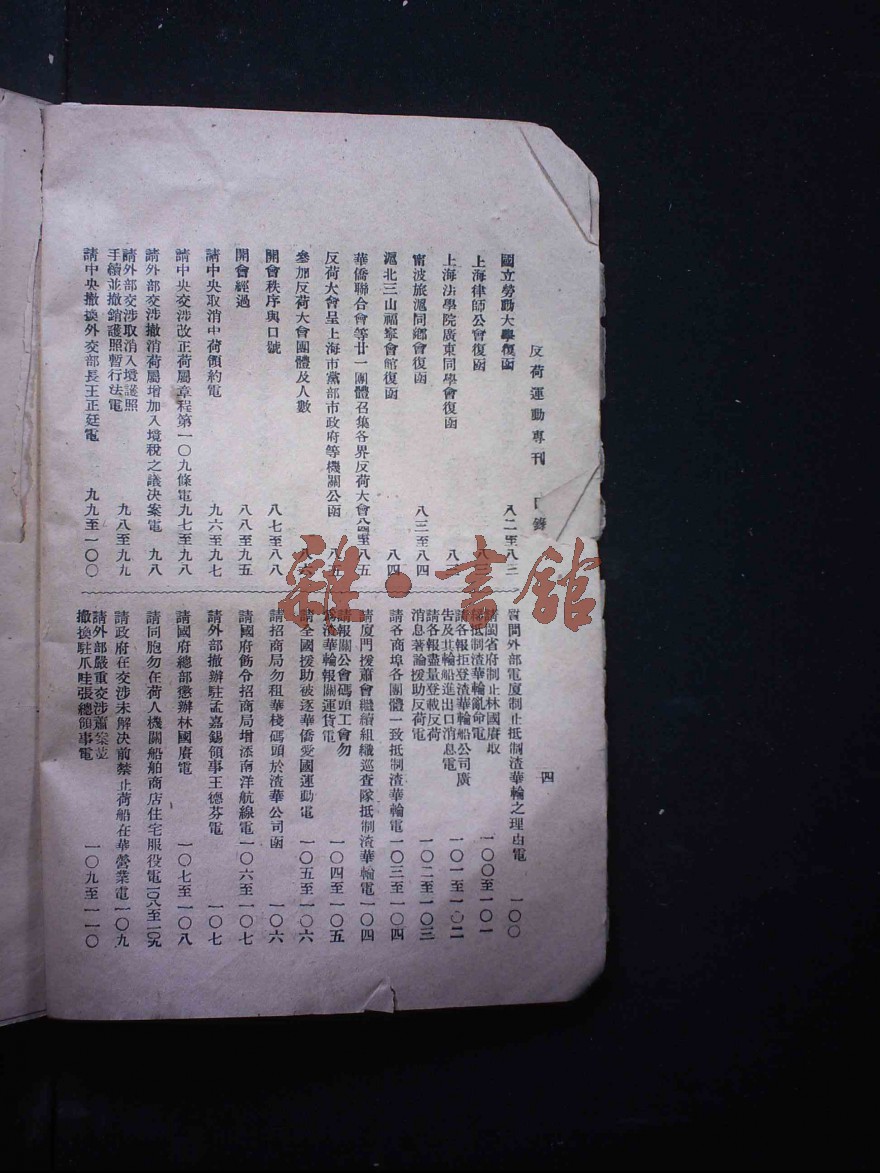 反荷運動專刊 目錄 四
國立勞動大學復函 八二至八三
上海律師公會復函 八三
上海法學院廣東同學會復函 八三
甯波旅滬同鄉會復函 八三至八四
滬北三山福寧會館復函 八四
華僑聯合會等廿一團體召集各界反荷大會 八四至八五
反荷大會呈上海市黨部市政府等機關公函 八五
參加反荷大會團體及人數 八六
開會秩序與口號 八七至八八
開會經過 八八至九五
請中央取消中荷領約電 九六至九七
請中央交涉改正荷屬章程第一〇九條電 九七至九八
請外部交涉撤消荷屬增加入境稅之議決案電 九八
請外部交涉取消入境護照
手續並撤銷護照暫行法電 九八至九九
請中央撤換外交部長王正廷電 九九至一〇〇
質問外部電廈制止抵制渣華輪之理由電 一〇〇
請閩省府制止林國賡取
抵制渣華輪亂命電 一〇〇至一〇一
請各報拒登渣華輪船公司廣
告及其輪船進出口消息電 一〇一至一〇二
請各報盡量登載反荷
消息著論援助反荷電 一〇二至一〇三
請各商埠各團體一致抵制渣華輪電 一〇三至一〇四
請廈門援蕭會繼續組織巡查隊抵制渣華輪電 一〇四
請報關公會碼頭工會勿
為渣華輪報關運貨電 一〇四至一〇五
請全國援助被逐華僑愛國運動電 一〇五至一〇六
請招商局勿租華棧碼頭於渣華公司函 一〇六
請國府飭令招商局增添南洋航線電 一〇六至一〇七
請外部撤辦駐孟嘉錫領事王德芬電 一〇七
請國府總部懲辦林國賡電 一〇七至一〇八
請同胞勿在荷人機關船舶商店住宅服役電 一〇八至一〇九
請政府在交涉未解決前禁止荷船在華營業電 一〇九
請外部嚴重交涉蕭案並
撤換駐爪哇張總領事電 一〇九至一一〇
雜·書館